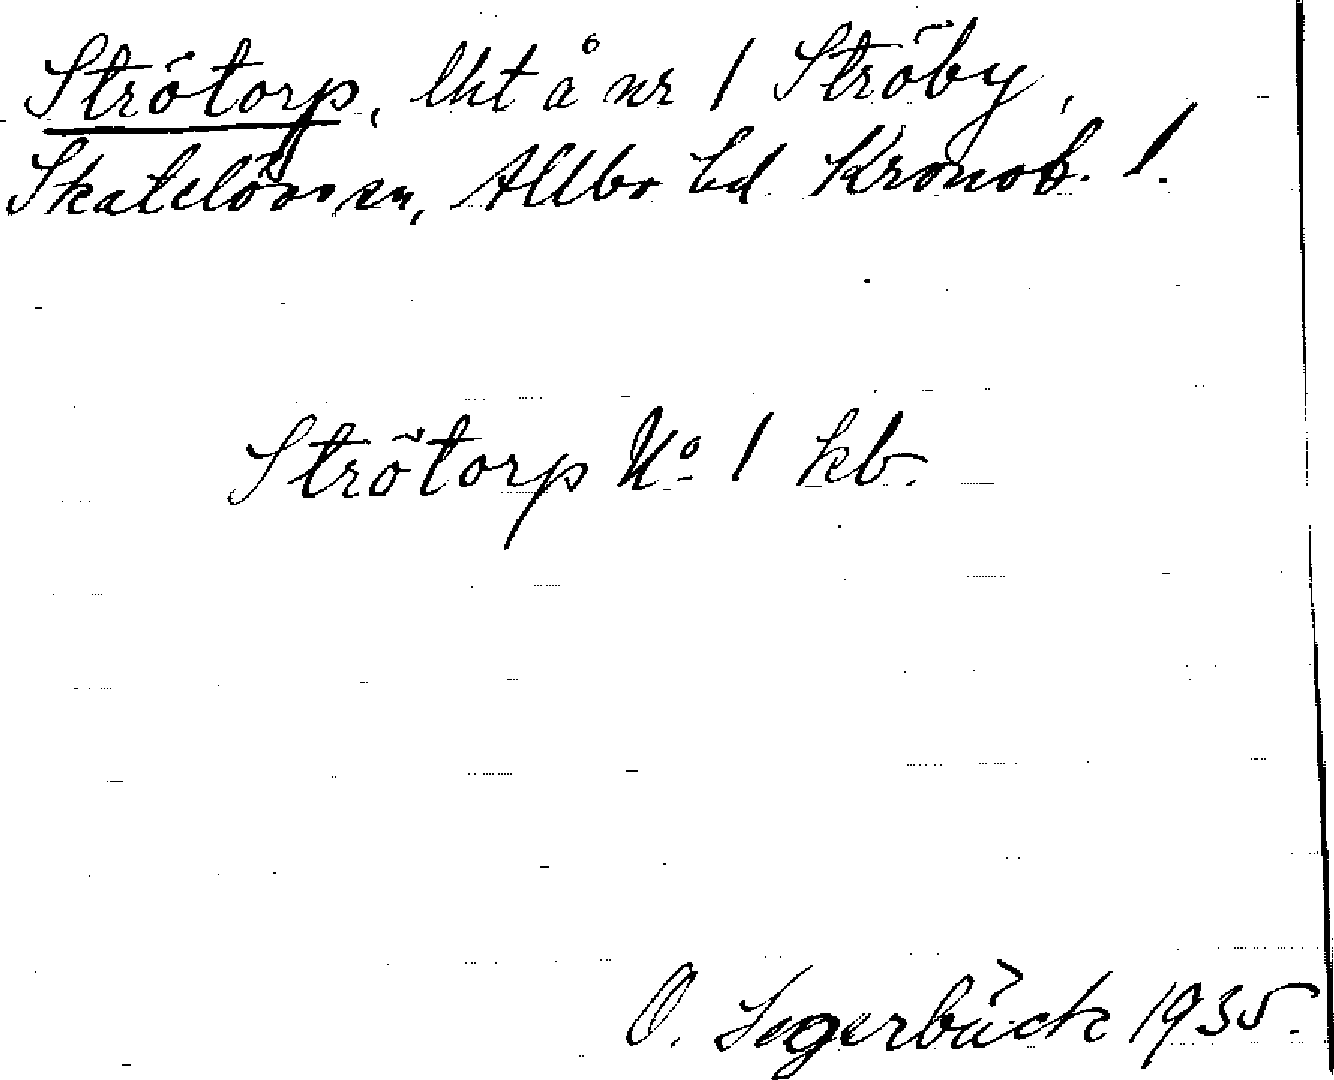 Strötorp, lht å nr 1 Ströby,
Skatelövs sn, Allbo hd Kronob. l.
Strötorp No 1 kb.
O. Segerbäck 1935.